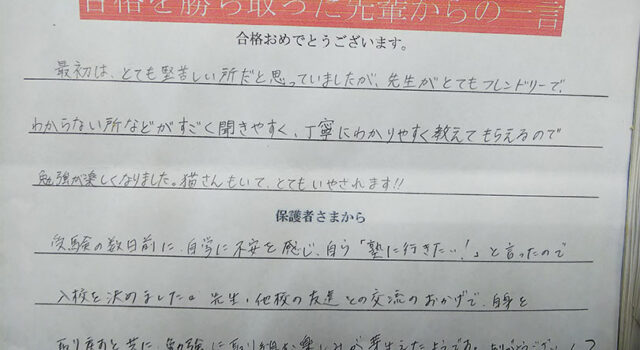 合格を勝ち取った先輩からの一言
合格おめでとうございます。
最初は、とても堅苦しい所だと思っていましたが、先生がとてもフレンドリーで、
わからない所などがすごく聞きやすく、丁寧にわかりやすく教えてもらえるので
勉強が楽しくなりました。猫さんもいて、とてもいやされます!!
保護者さまから
受験の数日前に、自学に不安を感じ、自ら「塾に行きたい!」と言ったので
入校を決めました。先生・他校の友達との交流のおかげで、自身を
取り戻すと共に、勉強に取り組む楽しみが芽生えたようです。